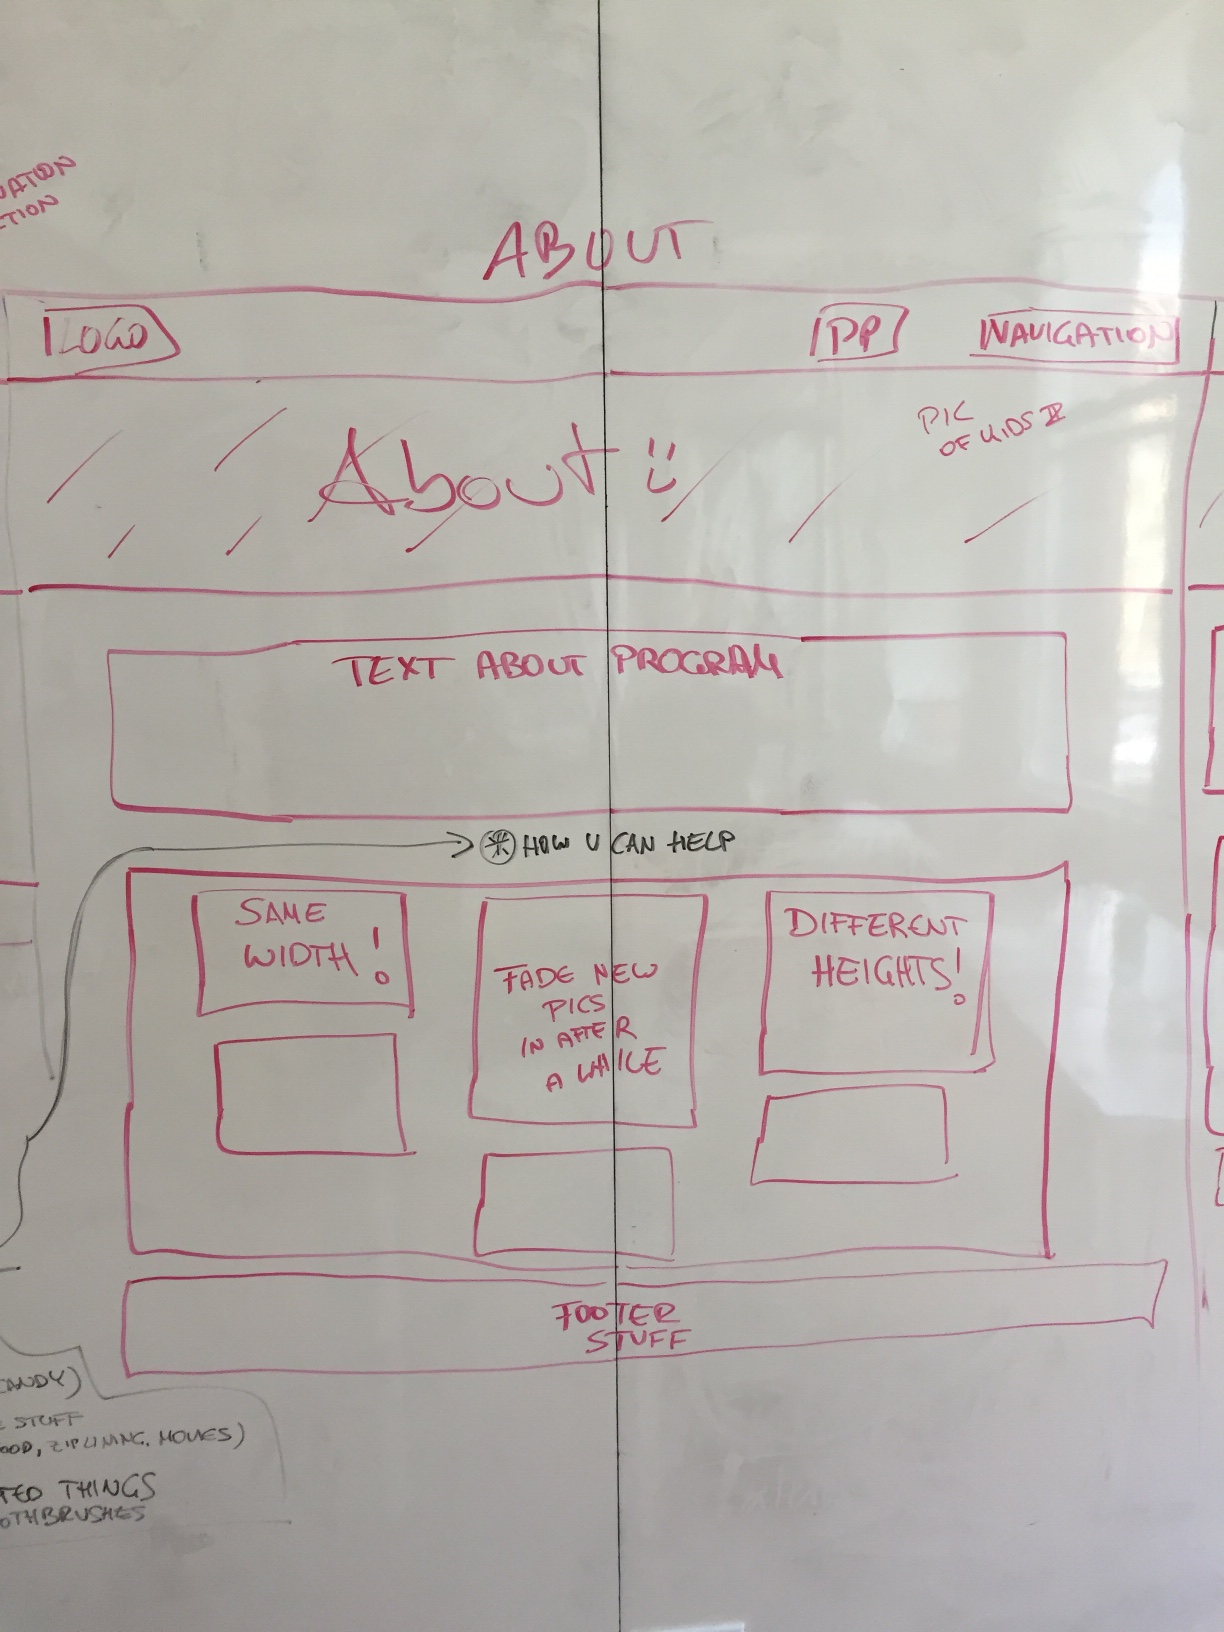 ABOUT
LOGO
PP
NAVIGATION
About :)
PIC
OF KIDS
TEXT ABOUT PROGRAM
HOW U CAN HELP
SAME
WIDTH!
FADE NEW
PICS
IN AFTER
A WHILE
DIFFERENT
HEIGHTS!
FOOTER
STUFF
CANDY)
STUFF
OOD, ZIPLINING, MOVIES)
TED THINGS
OTHBRUSHES